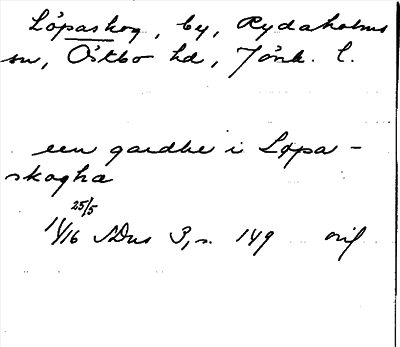 Löpaskog, by, Rydaholms
sn, Östbo hd, Jönk. l.
een gardhe i Løpa-
skogha
25/5
1416 SDns 3, s. 149 orig